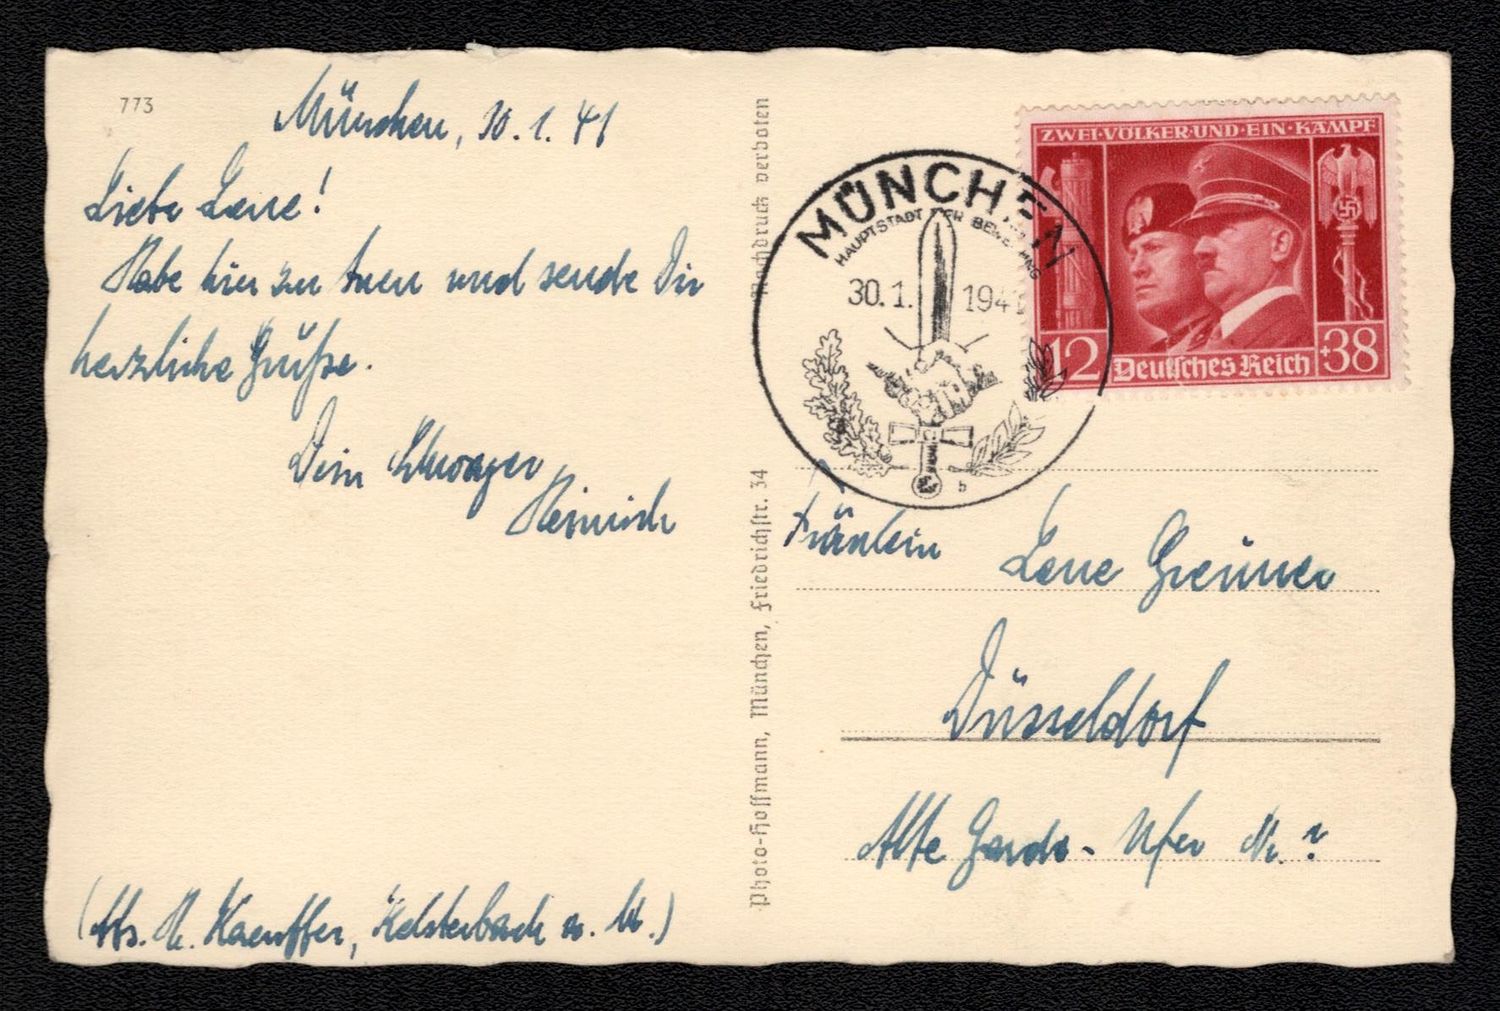 773
München, 30.1.41
Liebe Lene!
Habe hier zu tuen und sende Dir
herzliche Grüße.
Dein Schwager
Heinrich
(Abs. H. Kaeuffer, Kelsterbach a. M.)
Photo-Hoffmann, München, Friedrichstr. 34
Nachdruck verboten
MÜNCHEN
HAUPTSTADT DER BEWEGUNG
30.1. 1941
b
ZWEI·VÖLKER·UND·EIN·KAMPF
12 Deutsches Reich +38
Fräulein
Lene Greiner
Düsseldorf
Alte Garde-Ufer Nr. ?